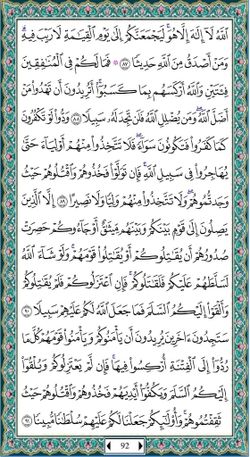 ٱللَّهُ لَآ إِلَٰهَ إِلَّا هُوَۚ لَيَجْمَعَنَّكُمْ إِلَىٰ يَوْمِ ٱلْقِيَٰمَةِ لَا رَيْبَ فِيهِۗ
وَمَنْ أَصْدَقُ مِنَ ٱللَّهِ حَدِيثًا ٨٧ ۞ فَمَا لَكُمْ فِى ٱلْمُنَٰفِقِينَ
فِئَتَيْنِ وَٱللَّهُ أَرْكَسَهُم بِمَا كَسَبُوٓا۟ۚ أَتُرِيدُونَ أَن تَهْدُوا۟ مَنْ
أَضَلَّ ٱللَّهُۖ وَمَن يُضْلِلِ ٱللَّهُ فَلَن تَجِدَ لَهُۥ سَبِيلًا ٨٨ وَدُّوا۟ لَوْ تَكْفُرُونَ
كَمَا كَفَرُوا۟ فَتَكُونُونَ سَوَآءًۖ فَلَا تَتَّخِذُوا۟ مِنْهُمْ أَوْلِيَآءَ حَتَّىٰ
يُهَاجِرُوا۟ فِى سَبِيلِ ٱللَّهِۚ فَإِن تَوَلَّوْا۟ فَخُذُوهُمْ وَٱقْتُلُوهُمْ حَيْثُ
وَجَدتُّمُوهُمْۖ وَلَا تَتَّخِذُوا۟ مِنْهُمْ وَلِيًّا وَلَا نَصِيرًا ٨٩ إِلَّا ٱلَّذِينَ
يَصِلُونَ إِلَىٰ قَوْمٍۭ بَيْنَكُمْ وَبَيْنَهُم مِّيثَٰقٌ أَوْ جَآءُوكُمْ حَصِرَتْ
صُدُورُهُمْ أَن يُقَٰتِلُوكُمْ أَوْ يُقَٰتِلُوا۟ قَوْمَهُمْۚ وَلَوْ شَآءَ ٱللَّهُ
لَسَلَّطَهُمْ عَلَيْكُمْ فَلَقَٰتَلُوكُمْۚ فَإِنِ ٱعْتَزَلُوكُمْ فَلَمْ يُقَٰتِلُوكُمْ
وَأَلْقَوْا۟ إِلَيْكُمُ ٱلسَّلَمَ فَمَا جَعَلَ ٱللَّهُ لَكُمْ عَلَيْهِمْ سَبِيلًا ٩٠
سَتَجِدُونَ ءَاخَرِينَ يُرِيدُونَ أَن يَأْمَنُوكُمْ وَيَأْمَنُوا۟ قَوْمَهُمْ كُلَّ مَا
رُدُّوٓا۟ إِلَى ٱلْفِتْنَةِ أُرْكِسُوا۟ فِيهَاۚ فَإِن لَّمْ يَعْتَزِلُوكُمْ وَيُلْقُوٓا۟
إِلَيْكُمُ ٱلسَّلَمَ وَيَكُفُّوٓا۟ أَيْدِيَهُمْ فَخُذُوهُمْ وَٱقْتُلُوهُمْ حَيْثُ
ثَقِفْتُمُوهُمْۚ وَأُو۟لَٰٓئِكُمْ جَعَلْنَا لَكُمْ عَلَيْهِمْ سُلْطَٰنًا مُّبِينًا ٩١
92